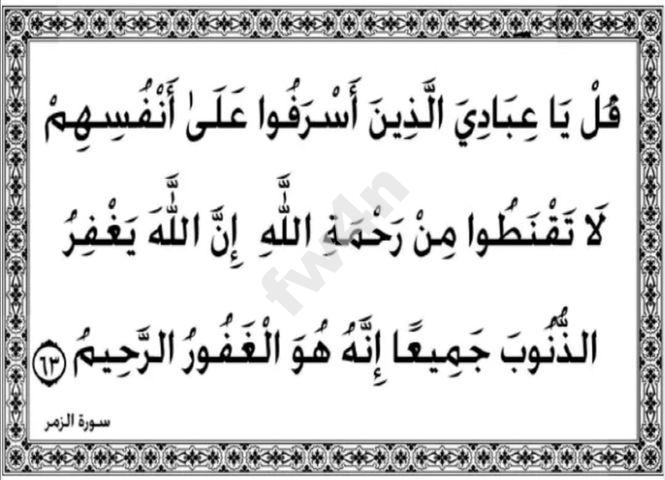 قُلْ يَا عِبَادِيَ الَّذِينَ أَسْرَفُوا عَلَىٰ أَنْفُسِهِمْ
لَا تَقْنَطُوا مِنْ رَحْمَةِ اللَّهِ إِنَّ اللَّهَ يَغْفِرُ
الذُّنُوبَ جَمِيعًا إِنَّهُ هُوَ الْغَفُورُ الرَّحِيمُ ٦٣
سورة الزمر
fw4n